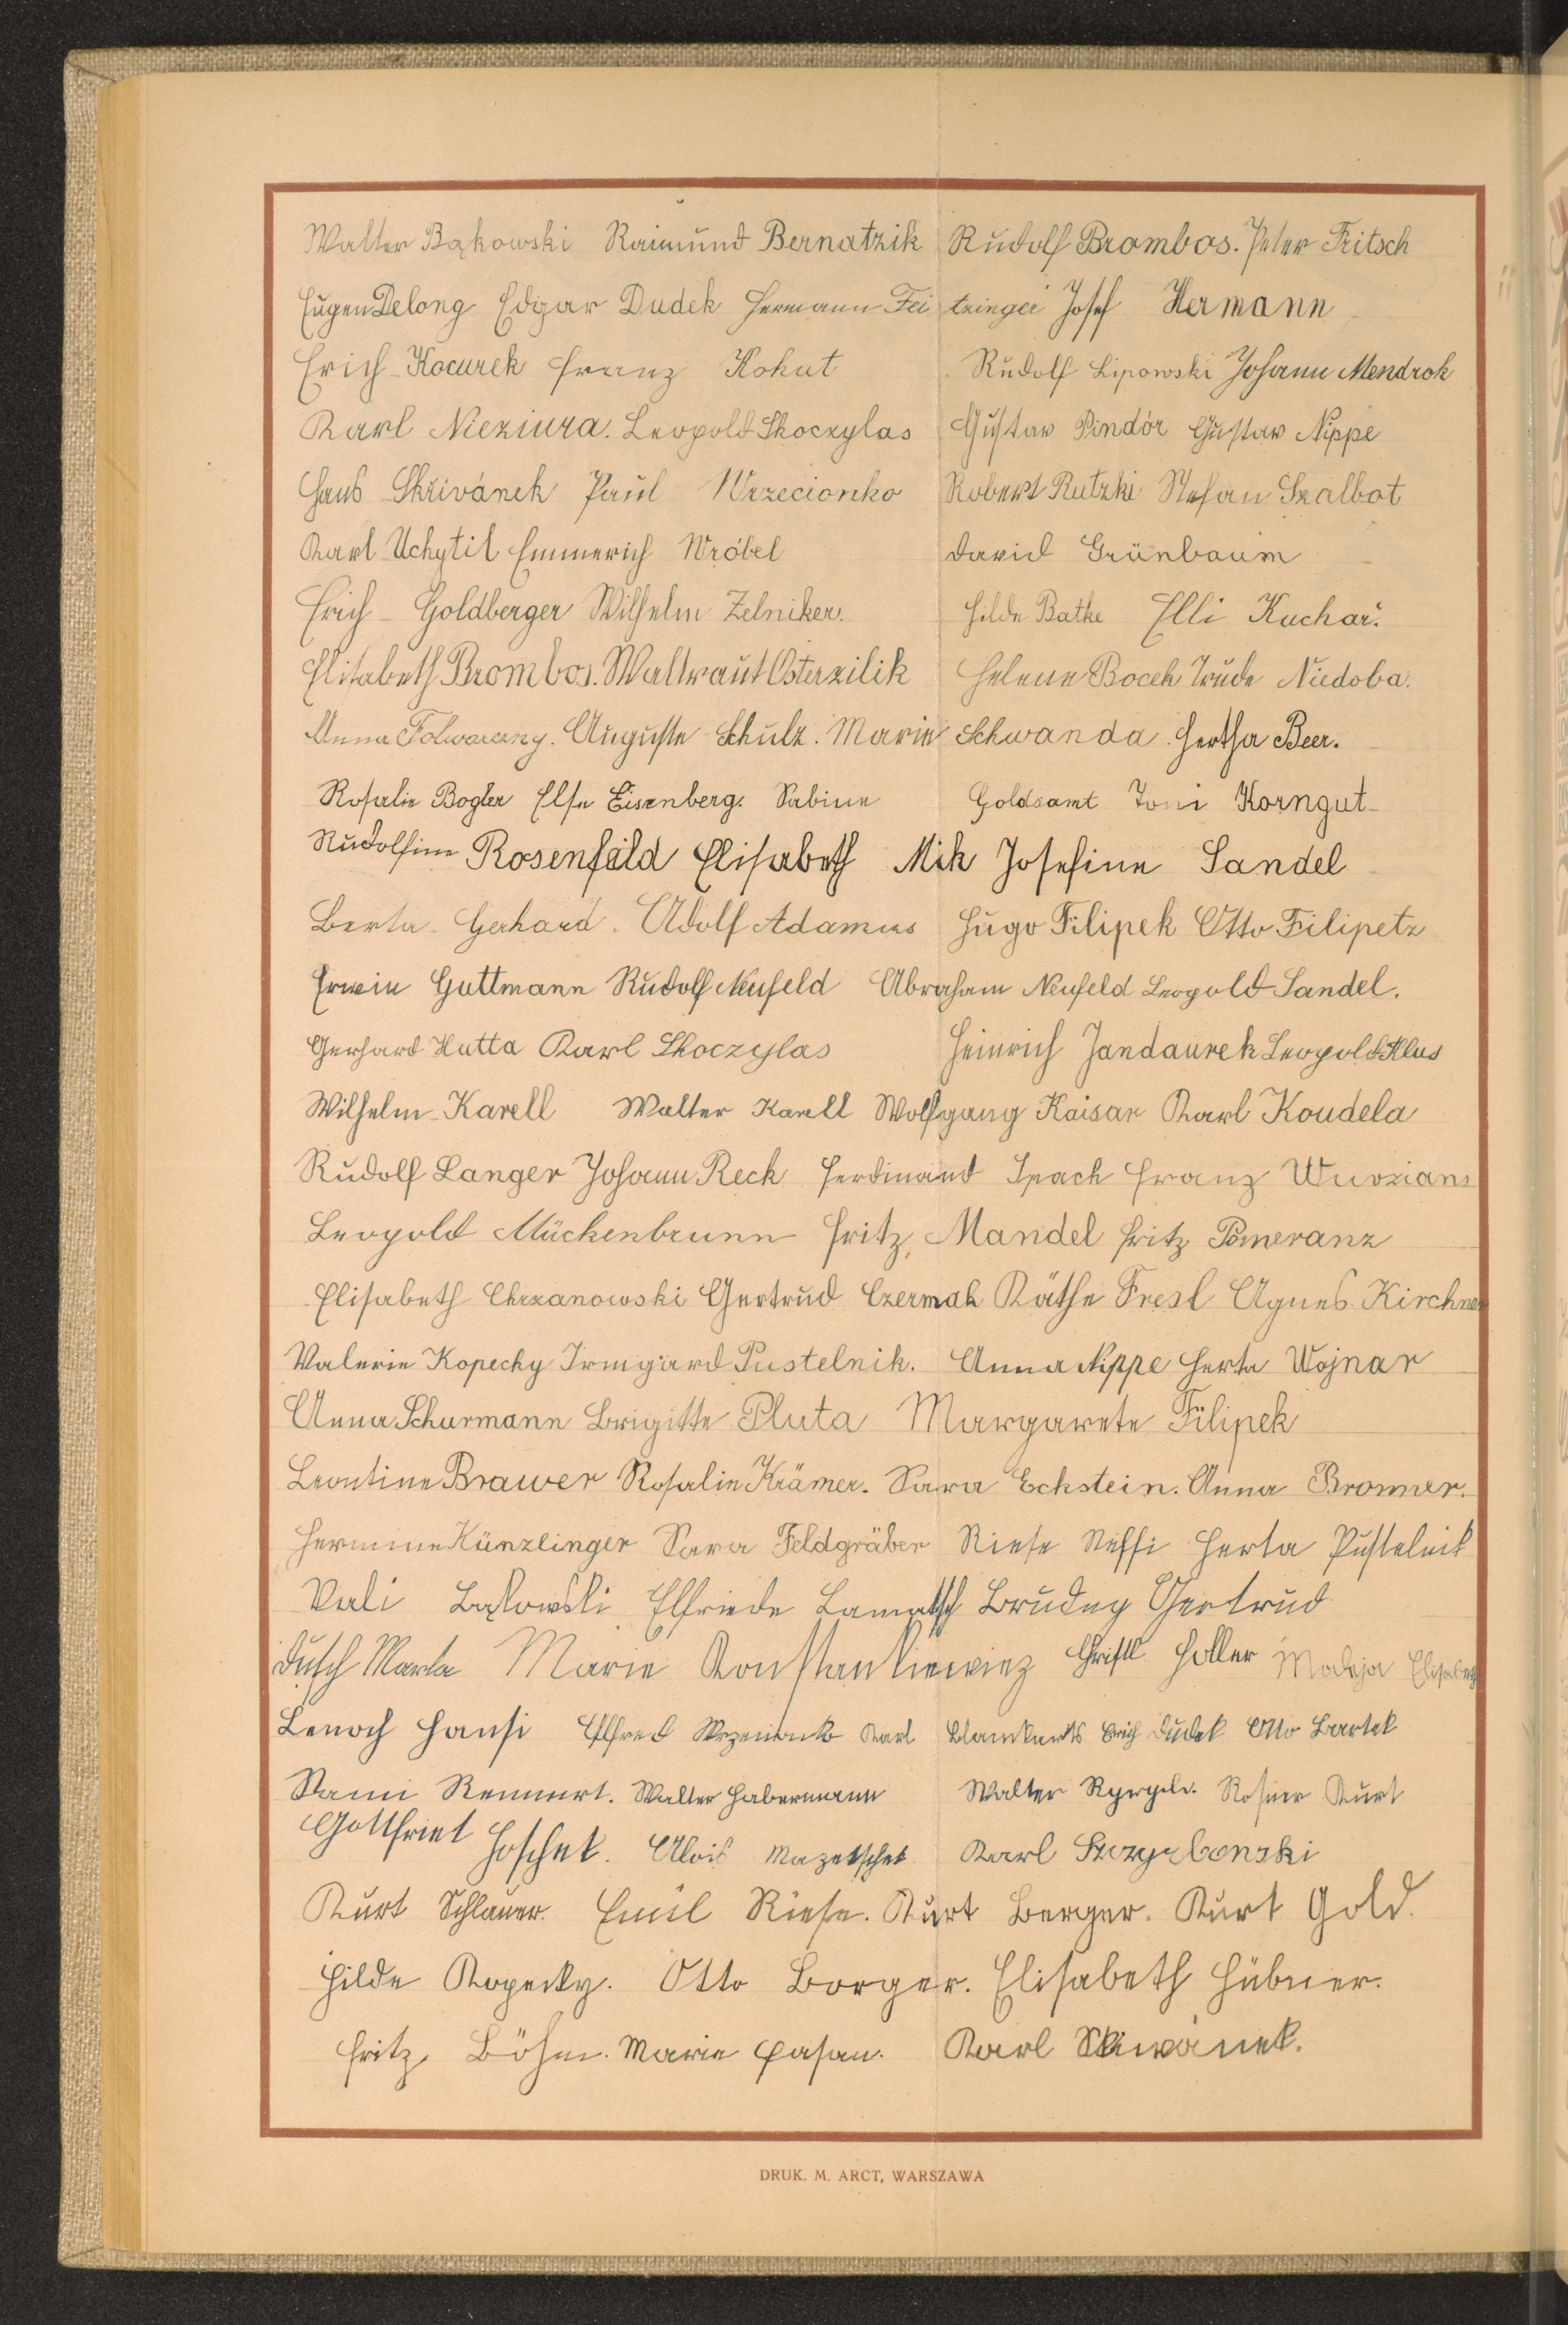 Walter Bąkowski Raimund Bernatzik Rudolf Brombos. Peter Fritsch
Eugen Delong Edgar Dudek Hermann Feitzinger Josef Hermann
Erich Kocurek Franz Kohut Rudolf Lipowski Johann Mendrok
Karl Nieziura. Leopold Skoczylas Gustav Pindór Gustav Nippe
Hans Skřivánek Paul Wrzecionko Robert Rutzki Stefan Szalbot
Karl Uchytil Emmerich Wróbel David Grünbaum
Erich Goldberger Wilhelm Zelniker. Hilde Bathe Elli Kuchař.
Elisabeth Brombos. Waltraut Osterzilik Helene Bocek Trude Niedoba.
Anna Folwarczny. Auguste Schulz. Marie Schwanda. Hertha Beer.
Rosalie Bogler Else Eisenberg. Sabine Goldsamt Toni Korngut
Rudolfine Rosenfeld Elisabeth Mik Josefine Sandel
Berta Gerhard. Adolf Adamus Hugo Filipek Otto Filipetz
Erwin Guttmann Rudolf Neufeld Abraham Neufeld Leopold Sandel.
Gerhard Hutta Karl Skoczylas Heinrich Jandaurek Leopold Klus
Wilhelm Karell Walter Karell Wolfgang Kaisar Karl Koudela
Rudolf Langer Johann Reck Ferdinand Spach Franz
Leopold Mückenbrunn Fritz Mandel Fritz Pomeranz
Elisabeth Chrzanowski Gertrud Czermak Käthe Fresl Agnes Kirchner
Valerie Kopecky Irmgard Pustelnik. Anna Nippe Herta Wojnar
Anna Schurmann Brigitte Pluta Margarete Filipek
Leontine Brawer Rosalie Krämer. Sara Eckstein. Anna Bronner.
Hermine Künzlinger Sara Feldgräber Riese Steffi Herta Pustelnik
Vali Bąkowski Elfriede Lamatsch Brudny Gertrud
Dusch Marta Marie Konstankiewicz Christl Holler Madeja Elisabeth
Lenoch Hansi Alfred Wrzecionko Karl Erich Dudek Otto Bartek
Sami Rennert. Walter Habermann Walter Rosner Kurt
Gottfried Hoschek. Alois Mazetschek Karl
Kurt Schlauer. Emil Riese. Kurt Berger. Kurt Gold.
Hilde Kopecky. Otto Borger. Elisabeth Hübner.
Fritz Böhm. Marie Karl Skiwánek.
DRUK. M. ARCT, WARSZAWA